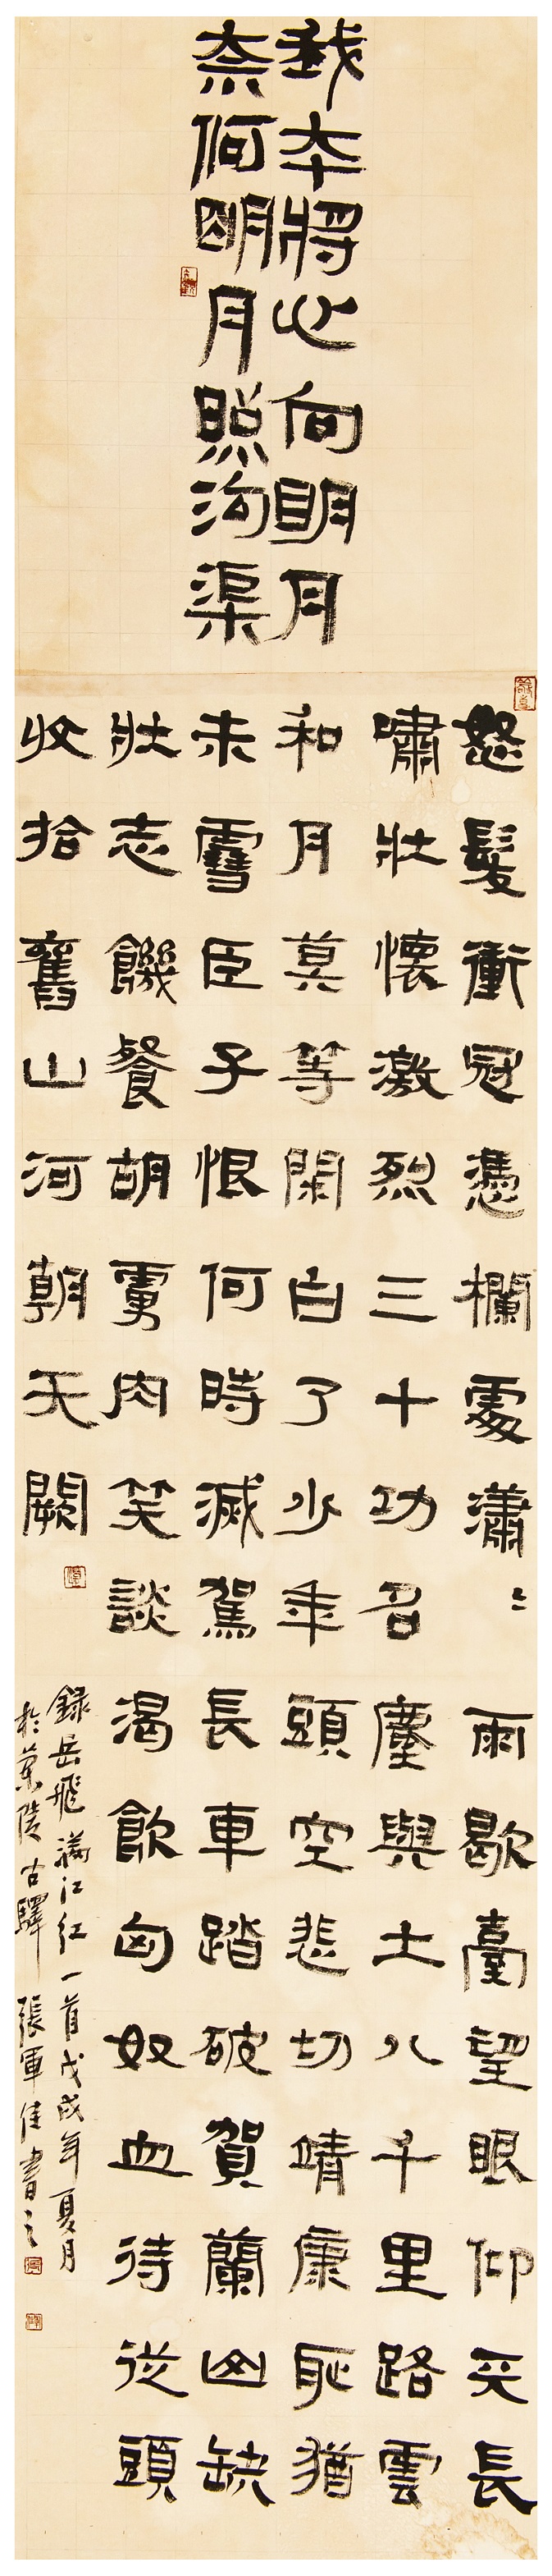 我本將心向明月
奈何明月照沟渠
怒髮衝冠憑欄處瀟〻雨歇臺望眼仰天長
嘯壯懷激烈三十功名塵與土八千里路雲
和月莫等閑白了少年頭空悲切靖康恥猶
未雪臣子恨何時滅駕長車踏破賀蘭山缺
壯志饑餐胡虜肉笑談渴飲匈奴血待從頭
收拾舊山河朝天闕
錄岳飛滿江紅一首戊戌年夏月
於蘭陵古驛張軍佳書之